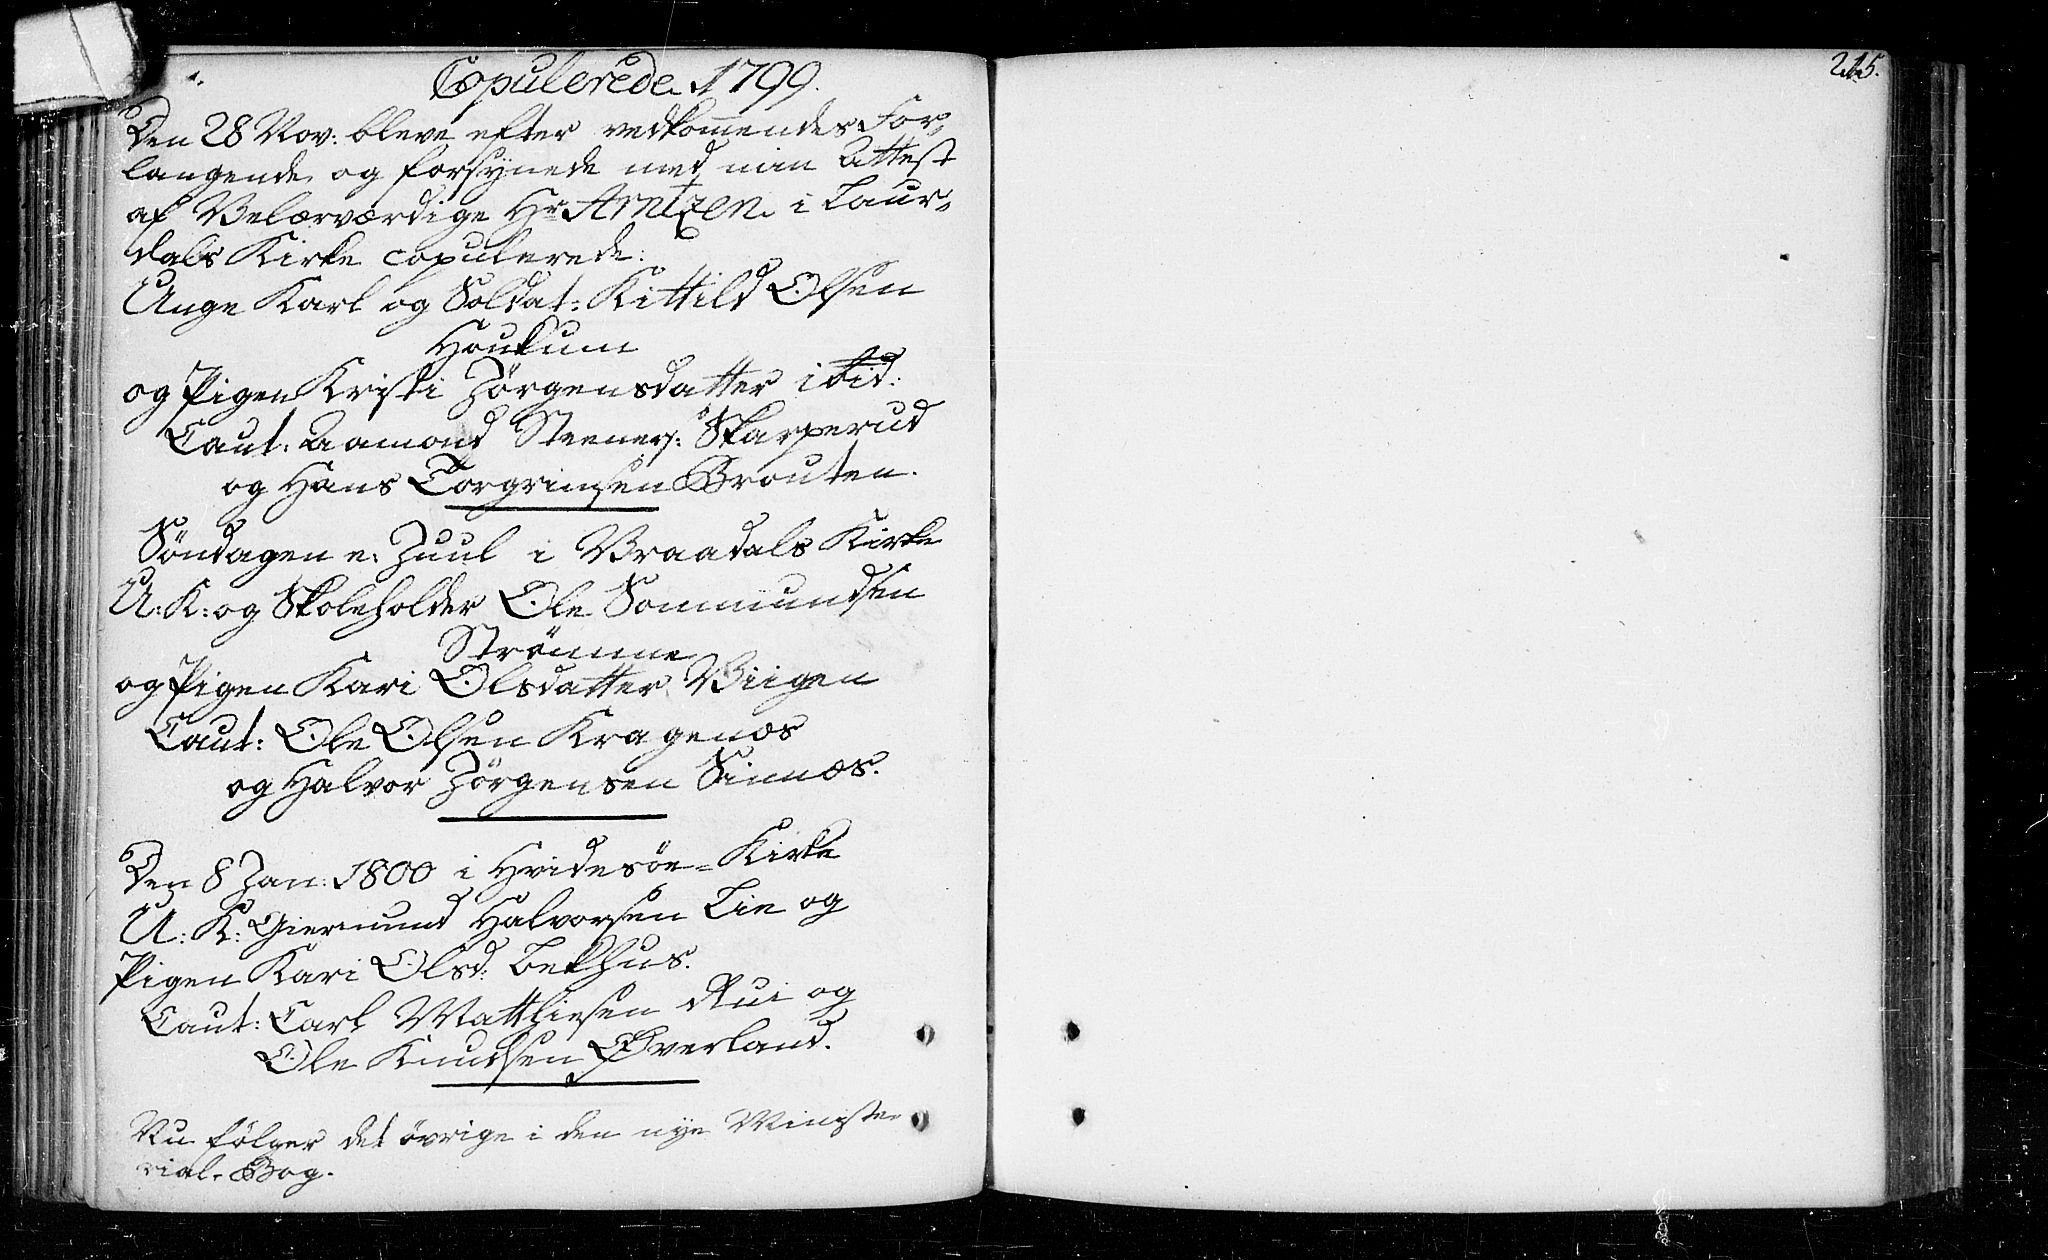 Copulerede 1799.
Den 28 Nov: bleve efter vedkommendes For-
langende og forsÿnede med min Attest
af Velærværdige Hr Arntzen i Laur-
dals Kirke copulerede:
Unge Karl og Soldat: Kittild Olsen
Houkum
og Pigen Kristi Jörgensdatter ibid:
Caut: Aamond Steeners: Skarperud
og Hans Torgrimsen Brouten.
Söndagen e. Juul i Vraadals Kirke
U: K: og Skoleholder Ole Sommundsen
Strömme
og Pigen Kari Olsdatter Viigen
Caut: Ole Olsen Kragenæs
og Halvor Jörgensen Sinnæs.
Den 8 Jan: 1800 i Hvidesöe-Kirke
U: K: Giermund Halvorsen Lie og
Pigen Kari Olsd: Bekhus.
Caut: Carl Matthiesen Rui og
Ole Knudsen Øverland.
Nu fölger det övrige i den nye Ministe-
rial-Bog.
215.